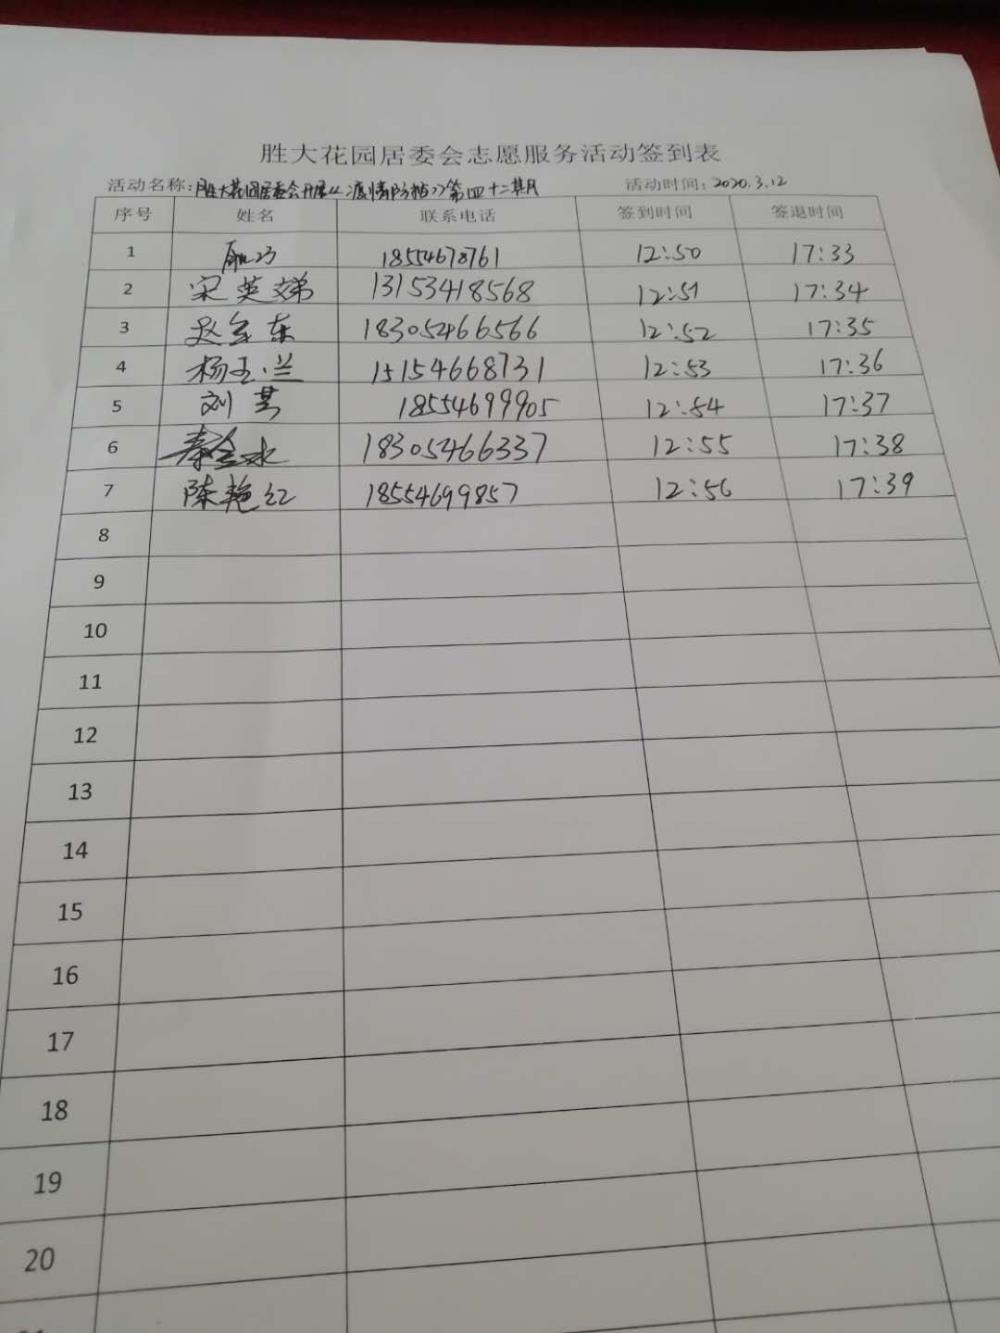 胜大花园居委会志愿服务活动签到表
活动名称:胜大花园居委会开展《疫情防控》第四十二期 活动时间:2020.3.12
序号 姓名 联系电话 签到时间 签退时间
1 18554678761 12:50 17:33
2 宋英娣 13153418568 12:51 17:34
3 赵金东 18305466566 12:52 17:35
4 杨玉兰 15154668731 12:53 17:36
5 刘 18554699905 12:54 17:37
6 秦金水 18305466337 12:55 17:38
7 陈艳红 18554699857 12:56 17:39
8
9
10
11
12
13
14
15
16
17
18
19
20